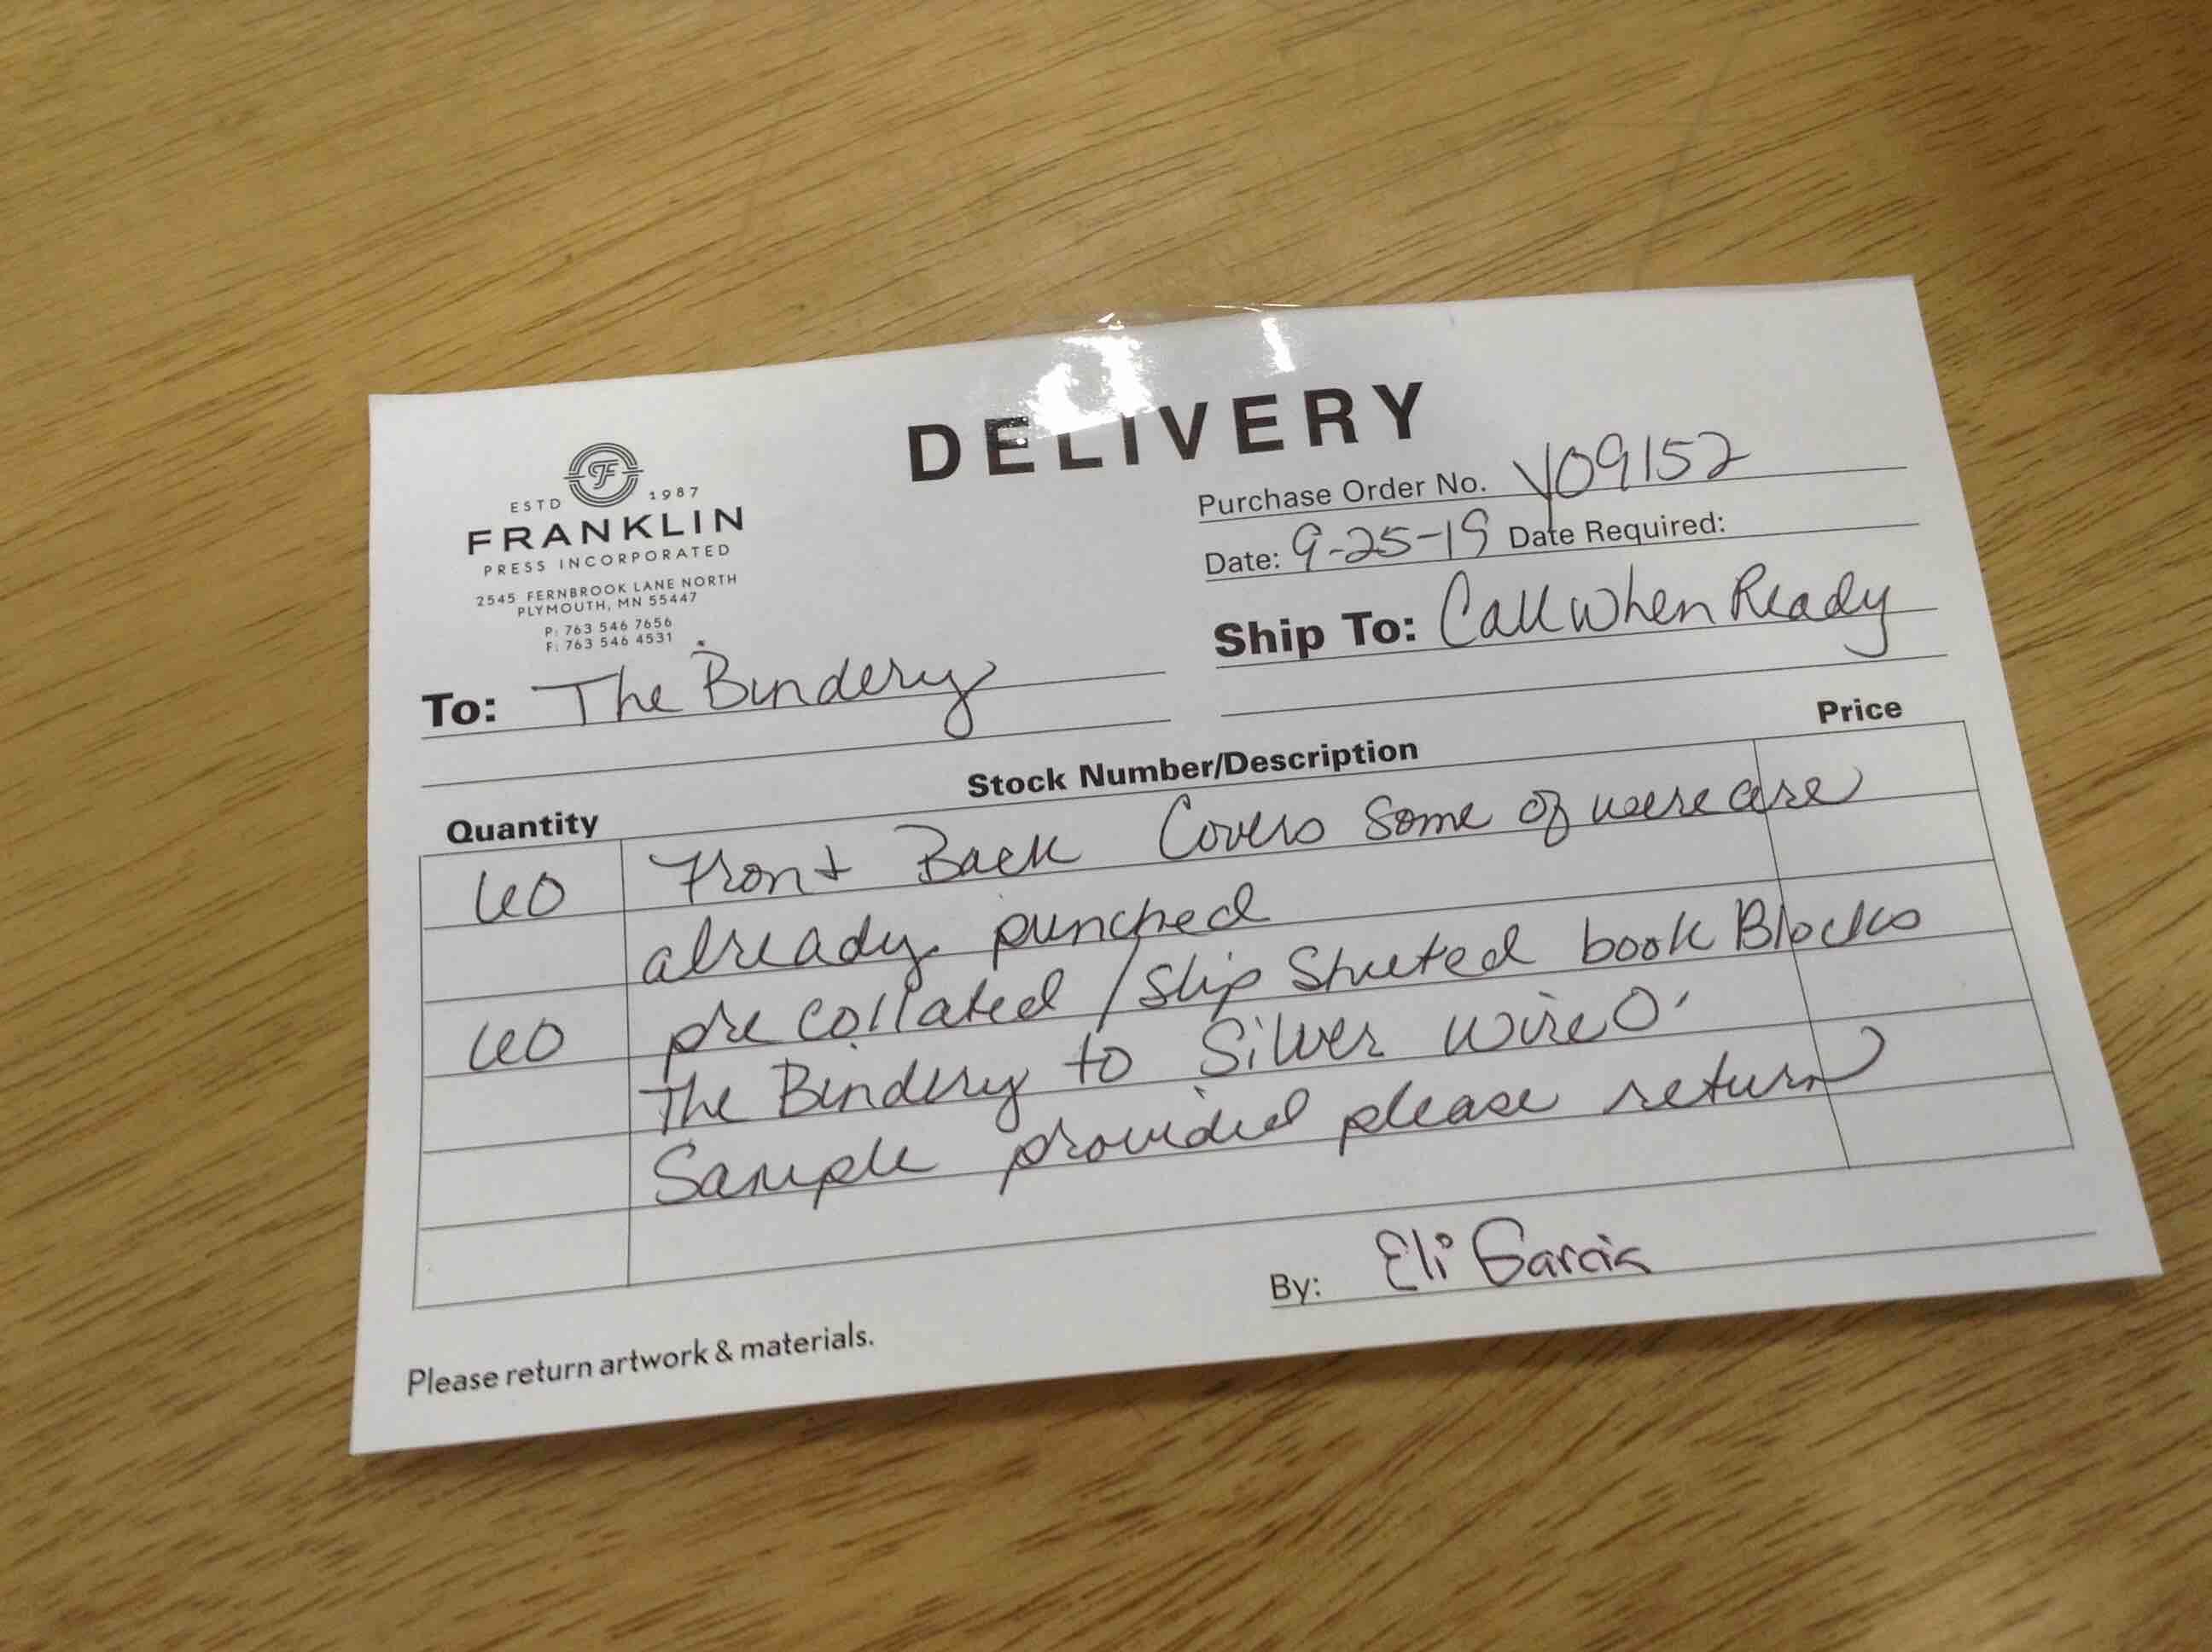 DELIVERY
F
ESTD 1987
FRANKLIN
PRESS INCORPORATED
2545 FERNBROOK LANE NORTH
PLYMOUTH, MN 55447
P: 763 546 7656
F: 763 546 4531
Purchase Order No. Y09152
Date: 9-25-19 Date Required:
To: The Bindery
Ship To: Call When Ready
Quantity Stock Number/Description Price
60 Front Back Covers Some of were are
already punched
60 pre collated / Slip Sheeted book Blocks
The Bindery to Silver wire O'
Sample provided please return
By: Eli Garcia
Please return artwork & materials.